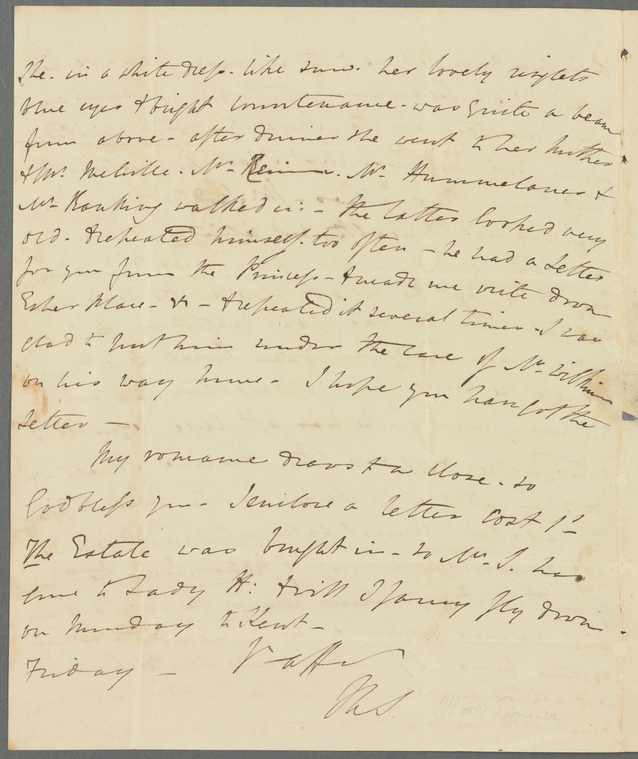 She. in a white dress. like snow. her lovely ringlets
blue eyes & bright countenance. was quite a beam
from above - after dinner she went to her mother
& Mr. Melville. Mr. Mr. Hummelauer &
Mr. Ranking walked in. - the latter looked very
old. & repeated himself. too often - he had a letter
for you from the Princess - & made me write down
Esher Place - &c - & repeated it several times - I was
glad to put him under the care of Mr.
on his way home - I hope you have got the
letter -
My romance draws to a close. so
God bless you - I enclose a letter cost 1s
The Estate was bought in - so Mr. S. has
gone to Lady H: & will I fancy fly down
on Monday to Kent -
Friday - Yr aff
M S.